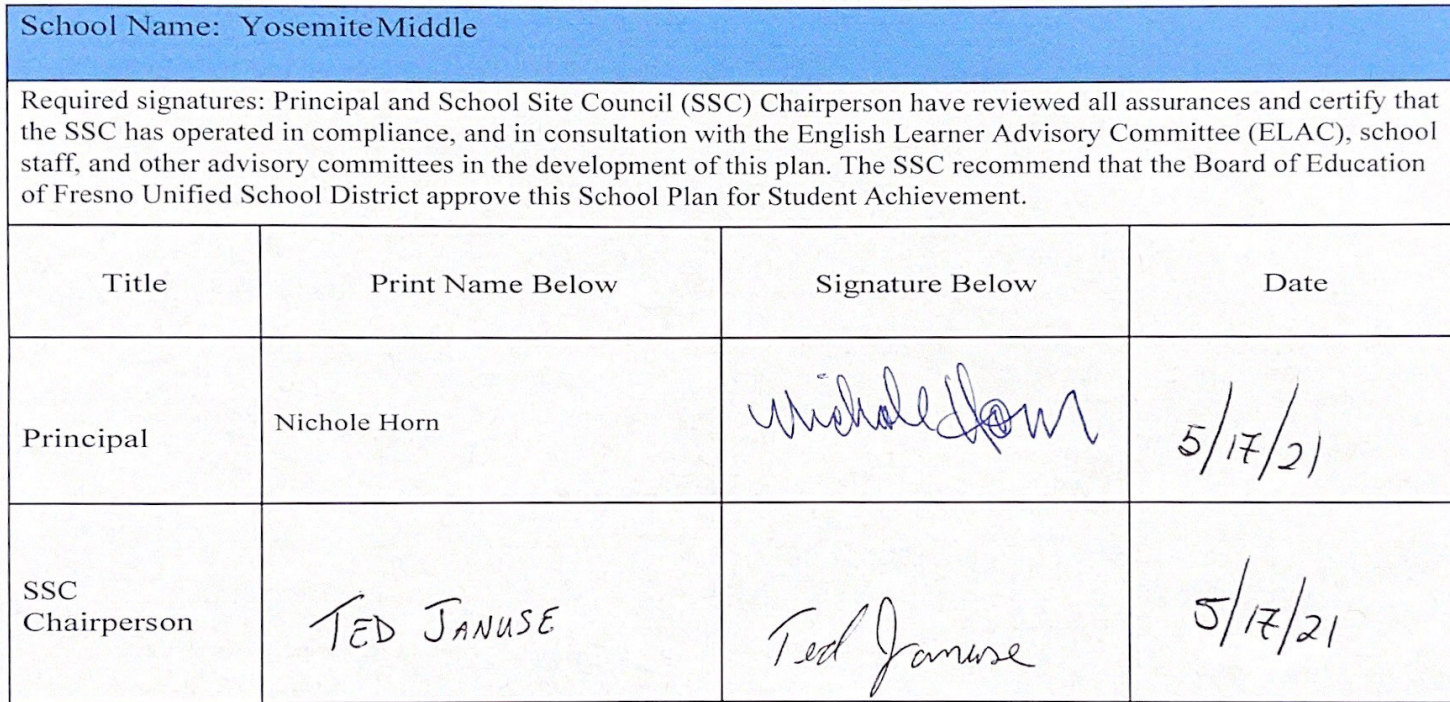 School Name: Yosemite Middle
Required signatures: Principal and School Site Council (SSC) Chairperson have reviewed all assurances and certify that
the SSC has operated in compliance, and in consultation with the English Learner Advisory Committee (ELAC), school
staff, and other advisory committees in the development of this plan. The SSC recommend that the Board of Education
of Fresno Unified School District approve this School Plan for Student Achievement.
Title Print Name Below Signature Below Date
Principal Nichole Horn Nichole Horn 5/17/21
SSC
Chairperson TED JANUSE Ted Januse 5/17/21